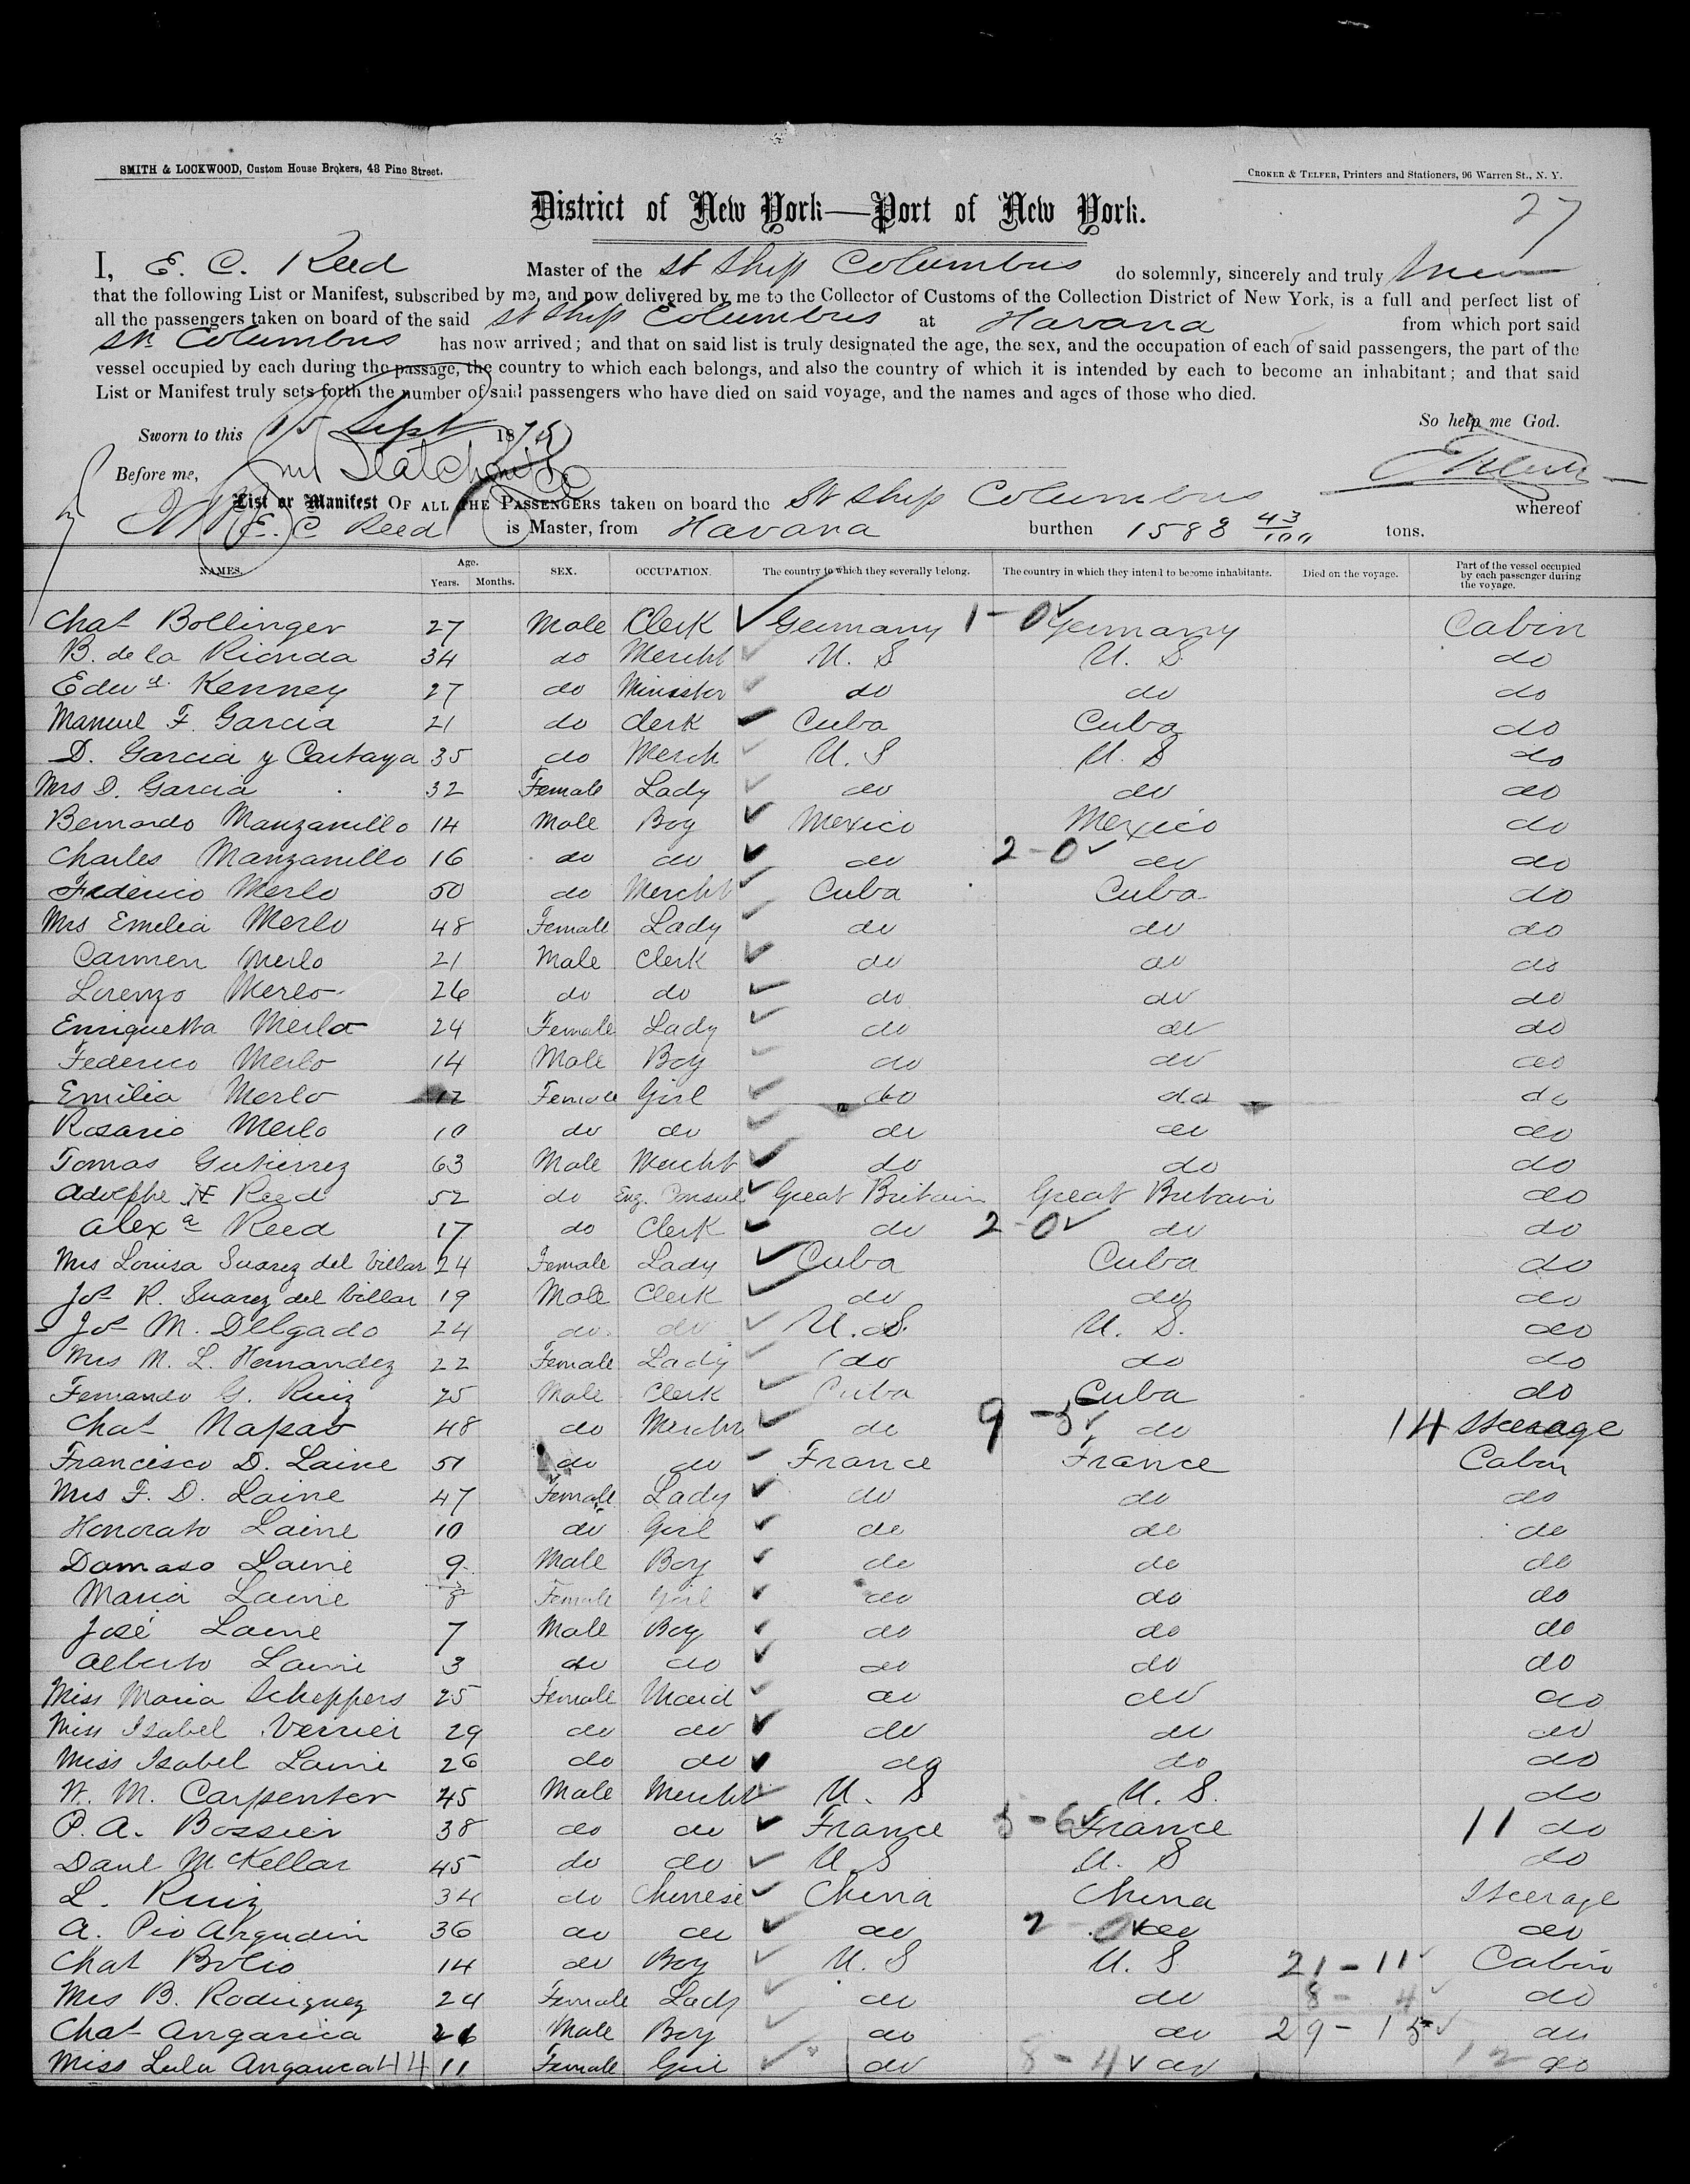 SMITH & LOCKWOOD, Custom House Brokers, 48 Pine Street.
CROKER & TELFER, Printers and Stationers, 96 Warren St., N. Y.
27
District of New York—Port of New York.
I, E. C. Reed Master of the St Ship Columbus do solemnly, sincerely and truly
that the following List or Manifest, subscribed by me, and now delivered by me to the Collector of Customs of the Collection District of New York, is a full and perfect list of
all the passengers taken on board of the said St Ship Columbus at Havana from which port said
Str Columbus has now arrived; and that on said list is truly designated the age, the sex, and the occupation of each of said passengers, the part of the
vessel occupied by each during the passage, the country to which each belongs, and also the country of which it is intended by each to become an inhabitant; and that said
List or Manifest truly sets forth the number of said passengers who have died on said voyage, and the names and ages of those who died.
So help me God.
Sworn to this 15 Sept 187
Before me,
List or Manifest OF ALL THE PASSENGERS taken on board the St Ship Columbus whereof
E. C Reed is Master, from Havana burthen 1583 43/100 tons.
NAMES. Age. Years. Months. SEX. OCCUPATION. The country to which they severally belong. The country in which they intend to become inhabitants. Died on the voyage. Part of the vessel occupied by each passenger during the voyage.
Chas Bollinger 27 Male Clerk Germany 1-0 Germany Cabin
B. de la Rionda 34 do Mercht U. S U. S do
Edwd Kenney 27 do Minister do do do
Manuel F. Garcia 21 do Clerk Cuba Cuba do
D. Garcia y Cartaya 35 do Merch U. S U. S do
Mrs D. Garcia 32 Female Lady do do do
Bernardo Manzanillo 14 Male Boy Mexico Mexico do
Charles Manzanillo 16 do do do 2-0 do do
Federico Merlo 50 do Mercht Cuba Cuba do
Mrs Emelia Merlo 48 Female Lady do do do
Carmen Merlo 21 Male Clerk do do do
Lorenzo Merlo 26 do do do do do
Enriquetta Merlo 24 Female Lady do do do
Federico Merlo 14 Male Boy do do do
Emilia Merlo 12 Female Girl do do do
Rosario Merlo 10 do do do do do
Tomas Gutierrez 63 Male Mercht do do do
Adolphe Reed 52 do Eng. Consul Great Britain Great Britain do
Alexa Reed 17 do Clerk do 2-0 do do
Mrs Louisa Suarez del Villar 24 Female Lady Cuba Cuba do
Jos R. Suarez del Villar 19 Male Clerk do do do
Jos M. Delgado 24 do do U. S. U. S. do
Mrs M. L. Hernandez 22 Female Lady do do do
Fernando G. Ruiz 25 Male Clerk Cuba Cuba do
Chas Napao 48 do Mercht do 9-5 do 14 Steerage
Francisco D. Laine 51 do do France France Cabin
Mrs F. D. Laine 47 Female Lady do do do
Honorato Laine 10 do Girl do do do
Damaso Laine 9 Male Boy do do do
Maria Laine 8 Female Girl do do do
José Laine 7 Male Boy do do do
Alberto Laine 3 do do do do do
Miss Maria Scheppers 25 Female Maid do do do
Miss Isabel Verrier 29 do do do do do
Miss Isabel Laine 26 do do do do do
W. M. Carpenter 45 Male Mercht U. S U. S. do
P. A. Bossier 38 do do France 5-6 France 11 do
Danl McKellar 45 do do U. S U. S do
L. Ruiz 34 do Chinese China China Steerage
A. Pio Argudin 36 do do do 2-0 do do
Chas Bolio 14 do Boy U. S U. S 21-11 Cabin
Mrs B. Rodriguez 24 Female Lady do do 8-4 do
Chas Angarica 26 Male Boy do do 29-15 do
Miss Lulu Angarica 44 11 Female Girl do 8-4 do 12 do